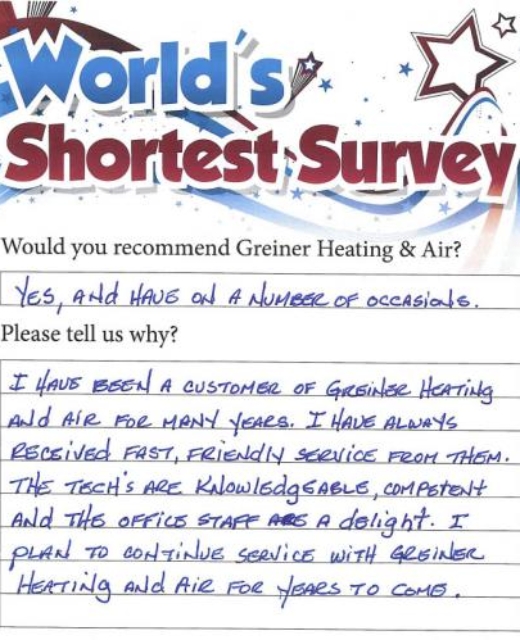 World's
Shortest Survey
Would you recommend Greiner Heating & Air?
YES, AND HAVE ON A NUMBER OF OCCASIONS.
Please tell us why?
I HAVE BEEN A CUSTOMER OF GREINER HEATING
AND AIR FOR MANY YEARS. I HAVE ALWAYS
RECEIVED FAST, FRIENDLY SERVICE FROM THEM.
THE TECH'S ARE KNOWLEDGEABLE, COMPETENT
AND THE OFFICE STAFF ARE A delight. I
PLAN TO CONTINUE SERVICE WITH GREINER
HEATING AND AIR FOR YEARS TO COME.